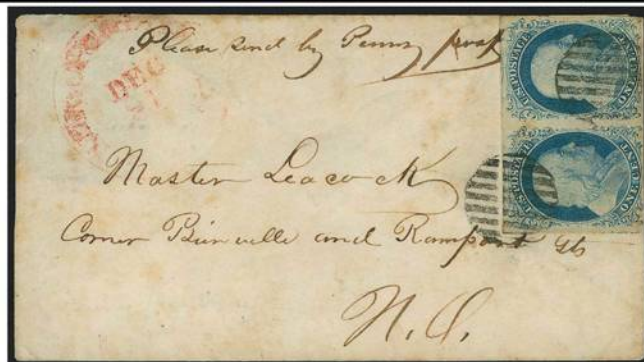 Please send by Penny post
DEC
U.S. POSTAGE
ONE CENT
U.S. POSTAGE
ONE CENT
Master Leacock
Corner Bienville and Rampart Sts
N.O.